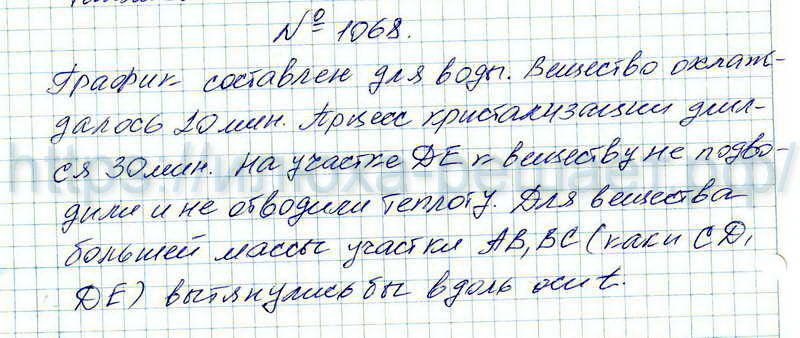 № 1068.
График составлен для воды. Вещество охлаж-
далось 20 мин. Процесс кристализации длил-
ся 30 мин. На участке DE к веществу не подво-
дили и не отводили теплоту. Для вещества
большей массы участки AB, BC (как и CD,
DE) вытянулись бы вдоль оси t.